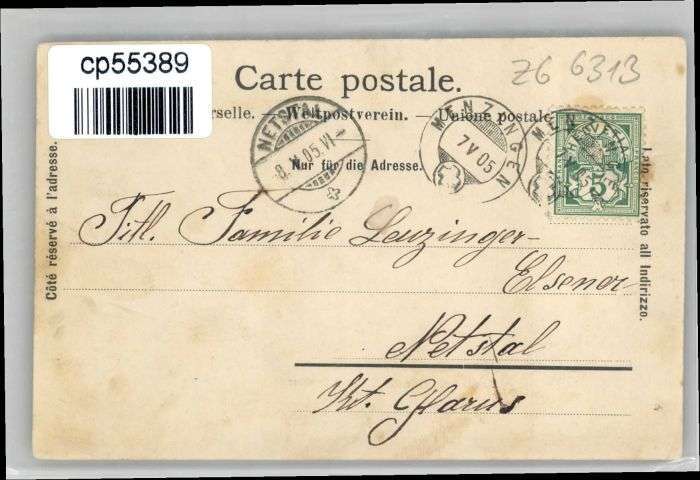 cp55389
Z6 6313
Carte postale.
rselle. – Weltpostverein. – Unione postale
Nur für die Adresse.
Côté réservé à l'adresse.
Lato riservato all Indirizzo.
NETSTAL
8. V. 05. VI
MENZINGEN
7 V 05
MENZIN
HELVETIA
5
Titl. Familie Leuzinger-
Elsener
Netstal
Kt. Glarus